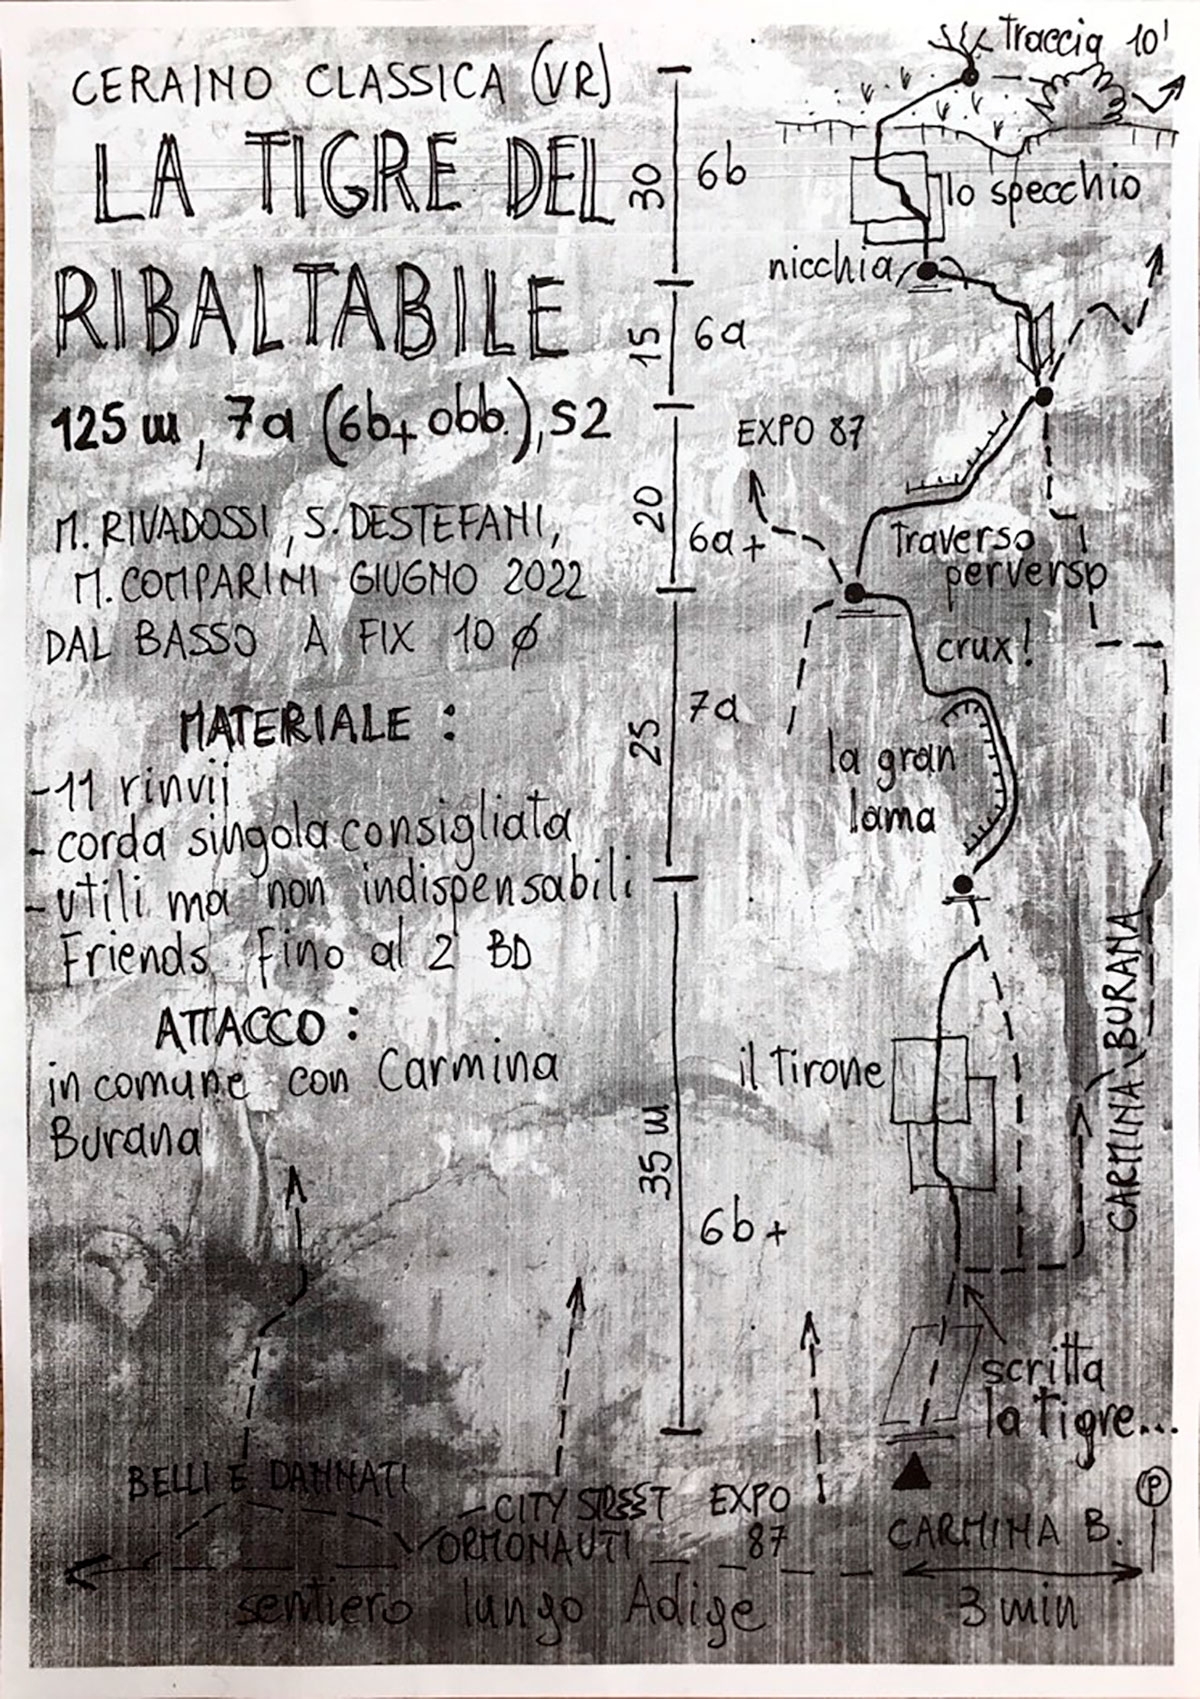 CERAINO CLASSICA (VR)
LA TIGRE DEL
RIBALTABILE
125 m, 7a (6b+ obb.), S2
M. RIVADOSSI, S. DESTEFANI,
M. COMPARINI GIUGNO 2022
DAL BASSO A FIX 10 ø
MATERIALE :
- 11 rinvii
- corda singola consigliata
- utili ma non indispensabili
Friends fino al 2 BD
ATTACCO :
in comune con Carmina
Burana
Traccia 10'
30
6b
lo specchio
nicchia
15
6a
EXPO 87
20
6a+
Traverso
perverso
crux!
25
7a
la gran
lama
il Tirone
CARMINA BURANA
35 m
6b+
scritta
la Tigre...
BELLI E DANNATI
- CITY STREET
ORMONAUTI
EXPO
87
CARMINA B.
P
sentiero lungo Adige
3 min